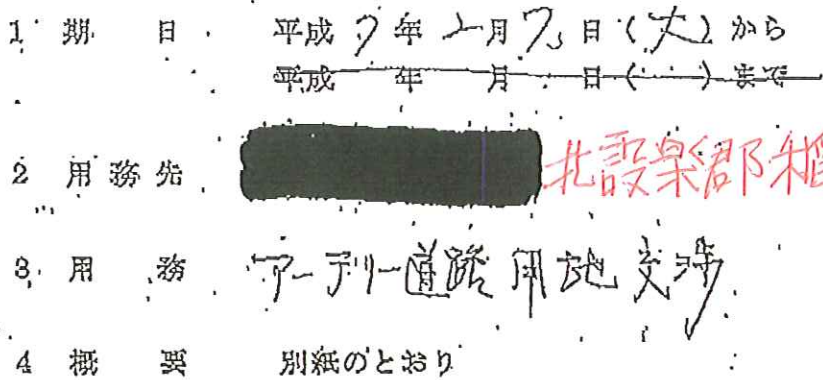 1 期 日 平成7年2月7日(火)から
平成 年 月 日( )まで
2 用務先 北設楽郡稲
3 用 務 アーテリー道路用地交渉
4 概 要 別紙のとおり